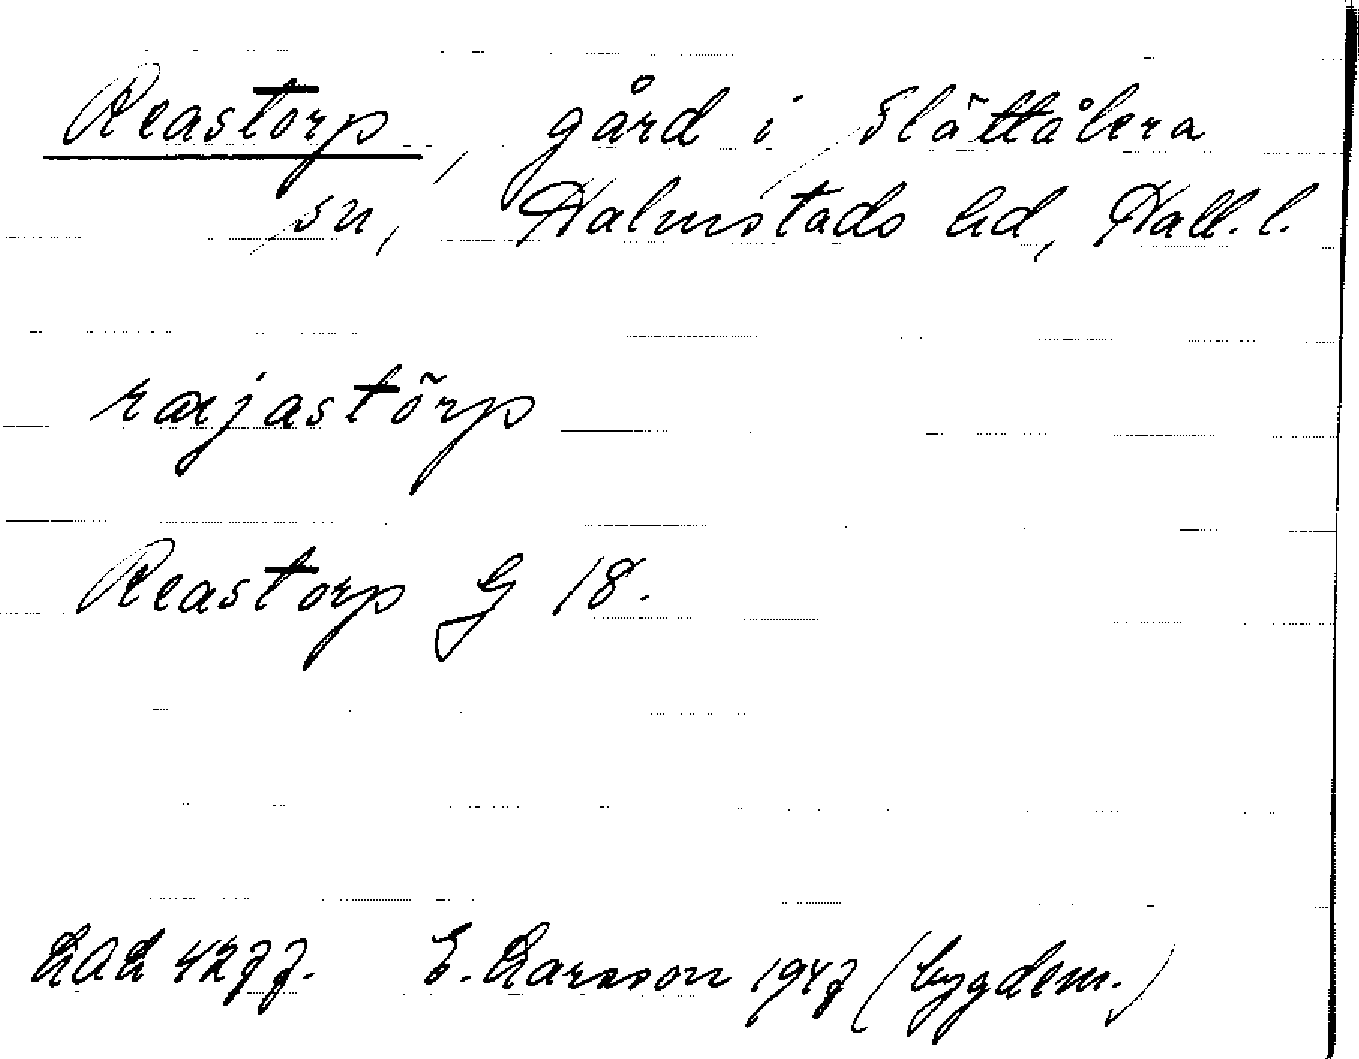 Reastorp, gård i Slättåkra
sn, Halmstads hd, Hall. l.
ræjastörp
Reastorp G 18.
LAL 4277. E. Larsson 1947 (bygdem.)